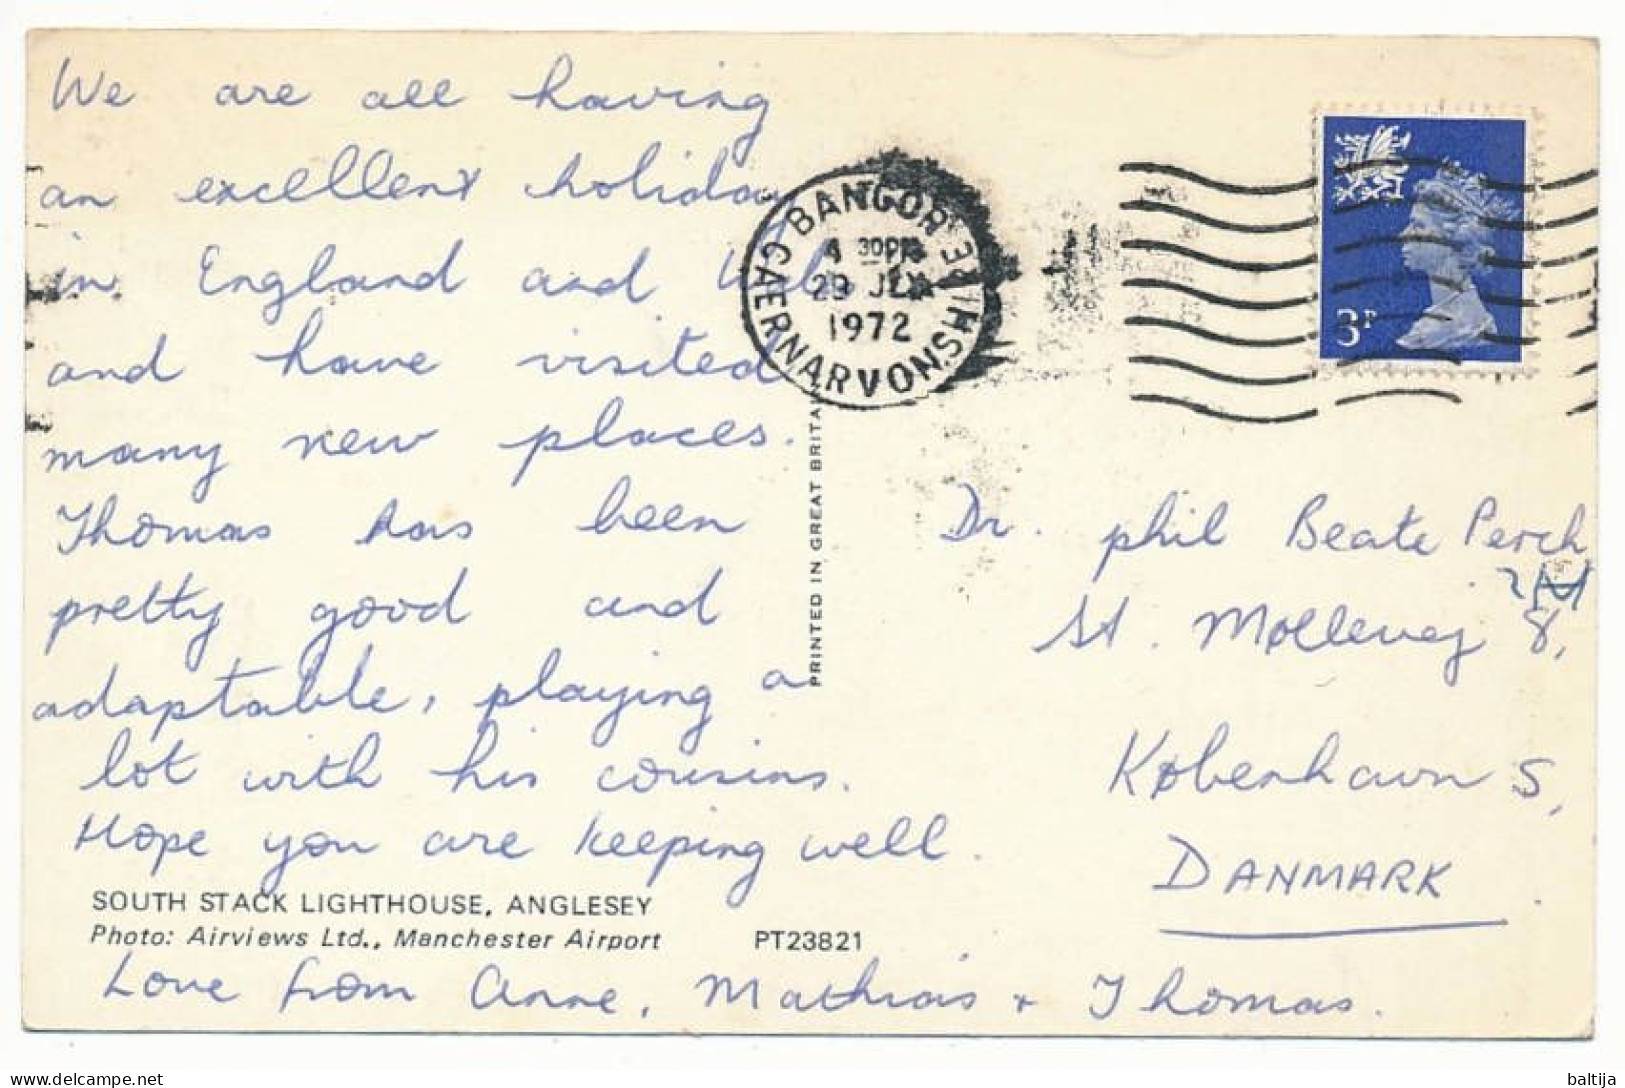 We are all having
an excellent holiday
in England and Wales
and have visited
many new places.
Thomas has been
pretty good and
adaptable, playing a
lot with his cousins.
Hope you are keeping well.
SOUTH STACK LIGHTHOUSE, ANGLESEY
Photo: Airviews Ltd., Manchester Airport PT23821
Love from Anne, Mathias + Thomas.
PRINTED IN GREAT BRITA
BANGOR
4 30PM
29 JLY
1972
CAERNARVONSHIRE
3P
Dr. phil Beate Perch
St. Møllevej 8,
København S,
DANMARK
baltija
delcampe.net